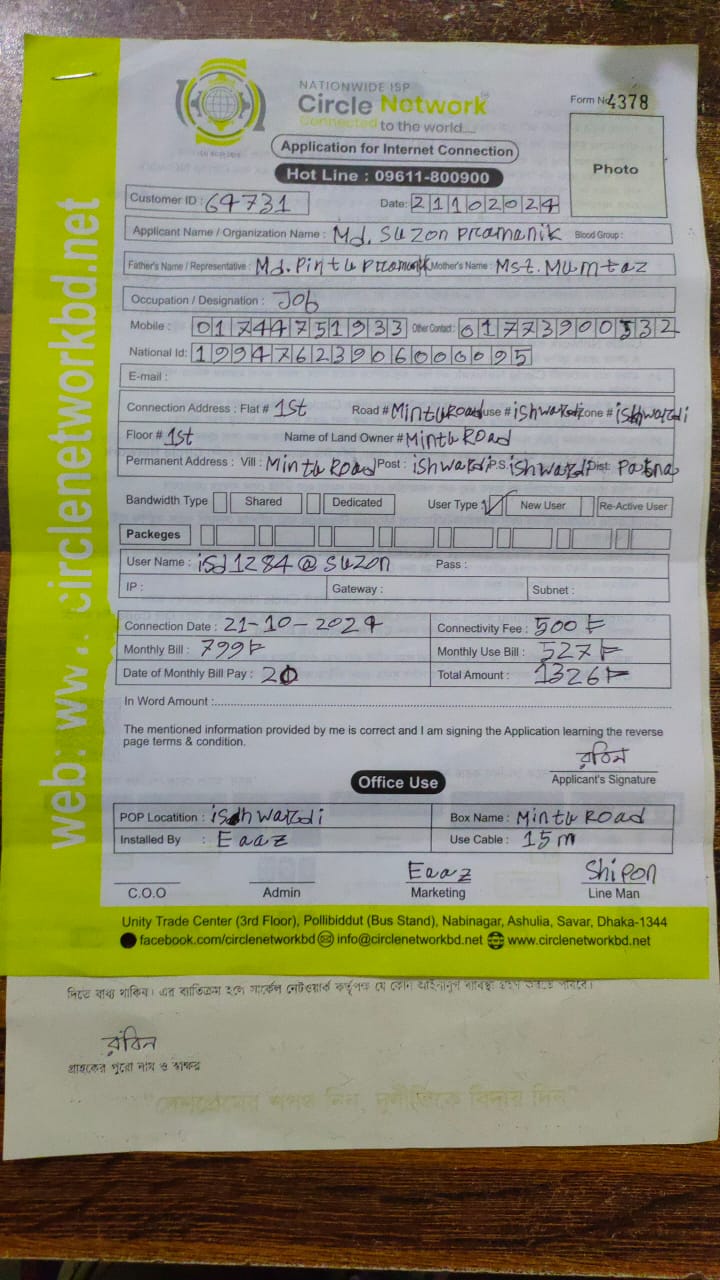 NATIONWIDE ISP
Circle Network
Connected to the world....
Form No 4378
Application for Internet Connection
Hot Line : 09611-800900
Photo
Customer ID : 64731 Date: 21102024
Applicant Name / Organization Name : Md. Suzon Pramanik Blood Group :
Father's Name / Representative : Md. Pintu Pramanik Mother's Name : Mst. Mumtaz
Occupation / Designation : Job
Mobile : 01744751933 Other Contact : 01773900532
National Id: 19947623906000095
E-mail :
Connection Address : Flat # 1st Road # Mintu Road House # ishwardi Zone # ishwardi
Floor # 1st Name of Land Owner # Mintu Road
Permanent Address : Vill : Mintu Road Post : ishwardi P.S: ishwardi Dist: Pabna
Bandwidth Type Shared Dedicated User Type New User Re-Active User
Packeges
User Name : isd1284@suzon Pass :
IP : Gateway : Subnet :
Connection Date : 21-10-2024 Connectivity Fee : 500
Monthly Bill : 799 Monthly Use Bill : 527
Date of Monthly Bill Pay : 20 Total Amount : 1326
In Word Amount :
The mentioned information provided by me is correct and I am signing the Application learning the reverse
page terms & condition.
রবিন
Applicant's Signature
Office Use
POP Locatition : ishwardi Box Name : Mintu Road
Installed By : Eaaz Use Cable : 15m
Eaaz Shipon
C.O.O Admin Marketing Line Man
Unity Trade Center (3rd Floor), Pollibiddut (Bus Stand), Nabinagar, Ashulia, Savar, Dhaka-1344
facebook.com/circlenetworkbd info@circlenetworkbd.net www.circlenetworkbd.net
web: ww.. circlenetworkbd.net
দিতে বাধ্য থাকিব। এর ব্যতিক্রম হলে সার্কেল নেটওয়ার্ক কর্তৃপক্ষ যে কোন আইনানুগ ব্যবস্থা গ্রহণ করতে পারবে।
রবিন
গ্রাহকের পুরো নাম ও স্বাক্ষর
"দেশপ্রেমের শপথ নিন, দুর্নীতিকে বিদায় দিন"